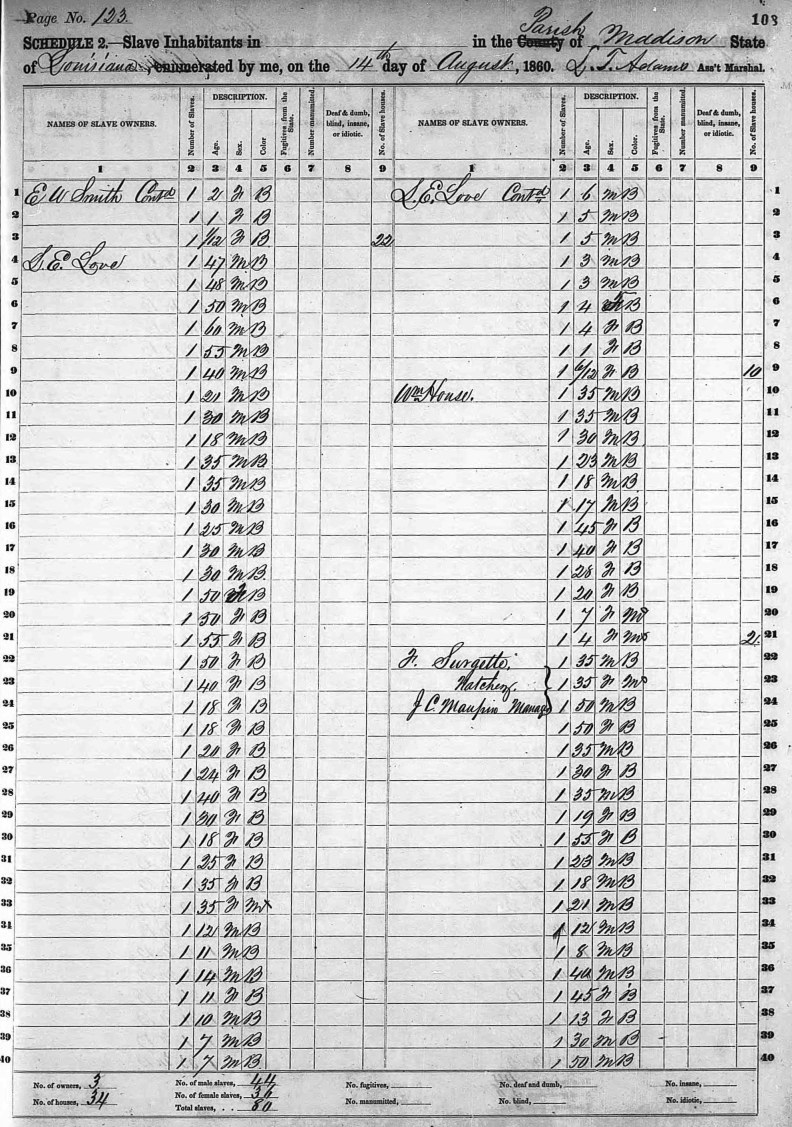 Page No. 123.
103
SCHEDULE 2.—Slave Inhabitants in in the County Parish of Maddison State
of Louisiana, enumerated by me, on the 14th day of August, 1860. L. T. Adams Ass't Marshal.
NAMES OF SLAVE OWNERS. Number of Slaves. DESCRIPTION. Age. Sex. Color. Fugitives from the State. Number manumitted. Deaf & dumb, blind, insane, or idiotic. No. of Slave houses. NAMES OF SLAVE OWNERS. Number of Slaves. DESCRIPTION. Age. Sex. Color. Fugitives from the State. Number manumitted. Deaf & dumb, blind, insane, or idiotic. No. of Slave houses.
1 2 3 4 5 6 7 8 9 1 2 3 4 5 6 7 8 9
1 E W Smith Contd 1 2 F B S. E. Love Contd 1 6 M B 1
2 1 1 F B 1 5 M B 2
3 1 1/12 F B 22 1 5 M B 3
4 S. E. Love 1 47 M B 1 3 M B 4
5 1 48 M B 1 3 M B 5
6 1 50 M B 1 4 F B 6
7 1 60 M B 1 4 F B 7
8 1 55 M B 1 1 F B 8
9 1 40 M B 1 6/12 F B 10 9
10 1 21 M B Wm House. 1 35 M B 10
11 1 30 M B 1 35 M B 11
12 1 18 M B 1 30 M B 12
13 1 35 M B 1 23 M B 13
14 1 35 M B 1 18 M B 14
15 1 30 M B 1 17 M B 15
16 1 25 M B 1 45 F B 16
17 1 30 M B 1 40 F B 17
18 1 30 M B 1 28 F B 18
19 1 50 F B 1 20 F B 19
20 1 50 F B 1 7 F M 20
21 1 55 F B 1 4 F M 2 21
22 1 50 F B F. Surgette, 1 35 M B 22
23 1 40 F B Natchez. 1 35 F M 23
24 1 18 F B J C. Maupin Manag 1 50 M B 24
25 1 18 F B 1 50 F B 25
26 1 20 F B 1 35 M B 26
27 1 24 F B 1 30 F B 27
28 1 40 F B 1 35 M B 28
29 1 30 F B 1 19 F B 29
30 1 18 F B 1 55 F B 30
31 1 25 F B 1 23 M B 31
32 1 35 F B 1 18 M B 32
33 1 35 F M 1 21 M B 33
34 1 12 M B 1 12 M B 34
35 1 11 M B 1 8 M B 35
36 1 14 M B 1 40 M B 36
37 1 11 F B 1 45 F B 37
38 1 10 M B 1 13 F B 38
39 1 7 M B 1 30 M B 39
40 1 7 M B 1 50 M B 40
No. of owners, 3 No. of male slaves, 44 No. fugitives, No. deaf and dumb, No. insane,
No. of houses, 34 No. of female slaves, 36 No. manumitted, No. blind, No. idiotic,
Total slaves, 80